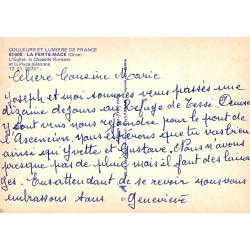 COULEURS ET LUMIERE DE FRANCE
61600 - LA FERTE-MACE (Orne)
L'Église, la Chapelle Romane
et la Place piétonne
Chère Cousine Marie
Joseph et moi sommes venus passés une
dizaine de jours au Refuge de Tessé. Denise
y sont venus nous rejoindre pour le pont de
l'Ascension. Nous espérons que tu vas bien
ainsi qu'Yvette et Gustave. Nous n'avons
presque pas de pluie mais il fait des
ges. En attendant de se revoir nous vous
embrassons tous
Geneviève